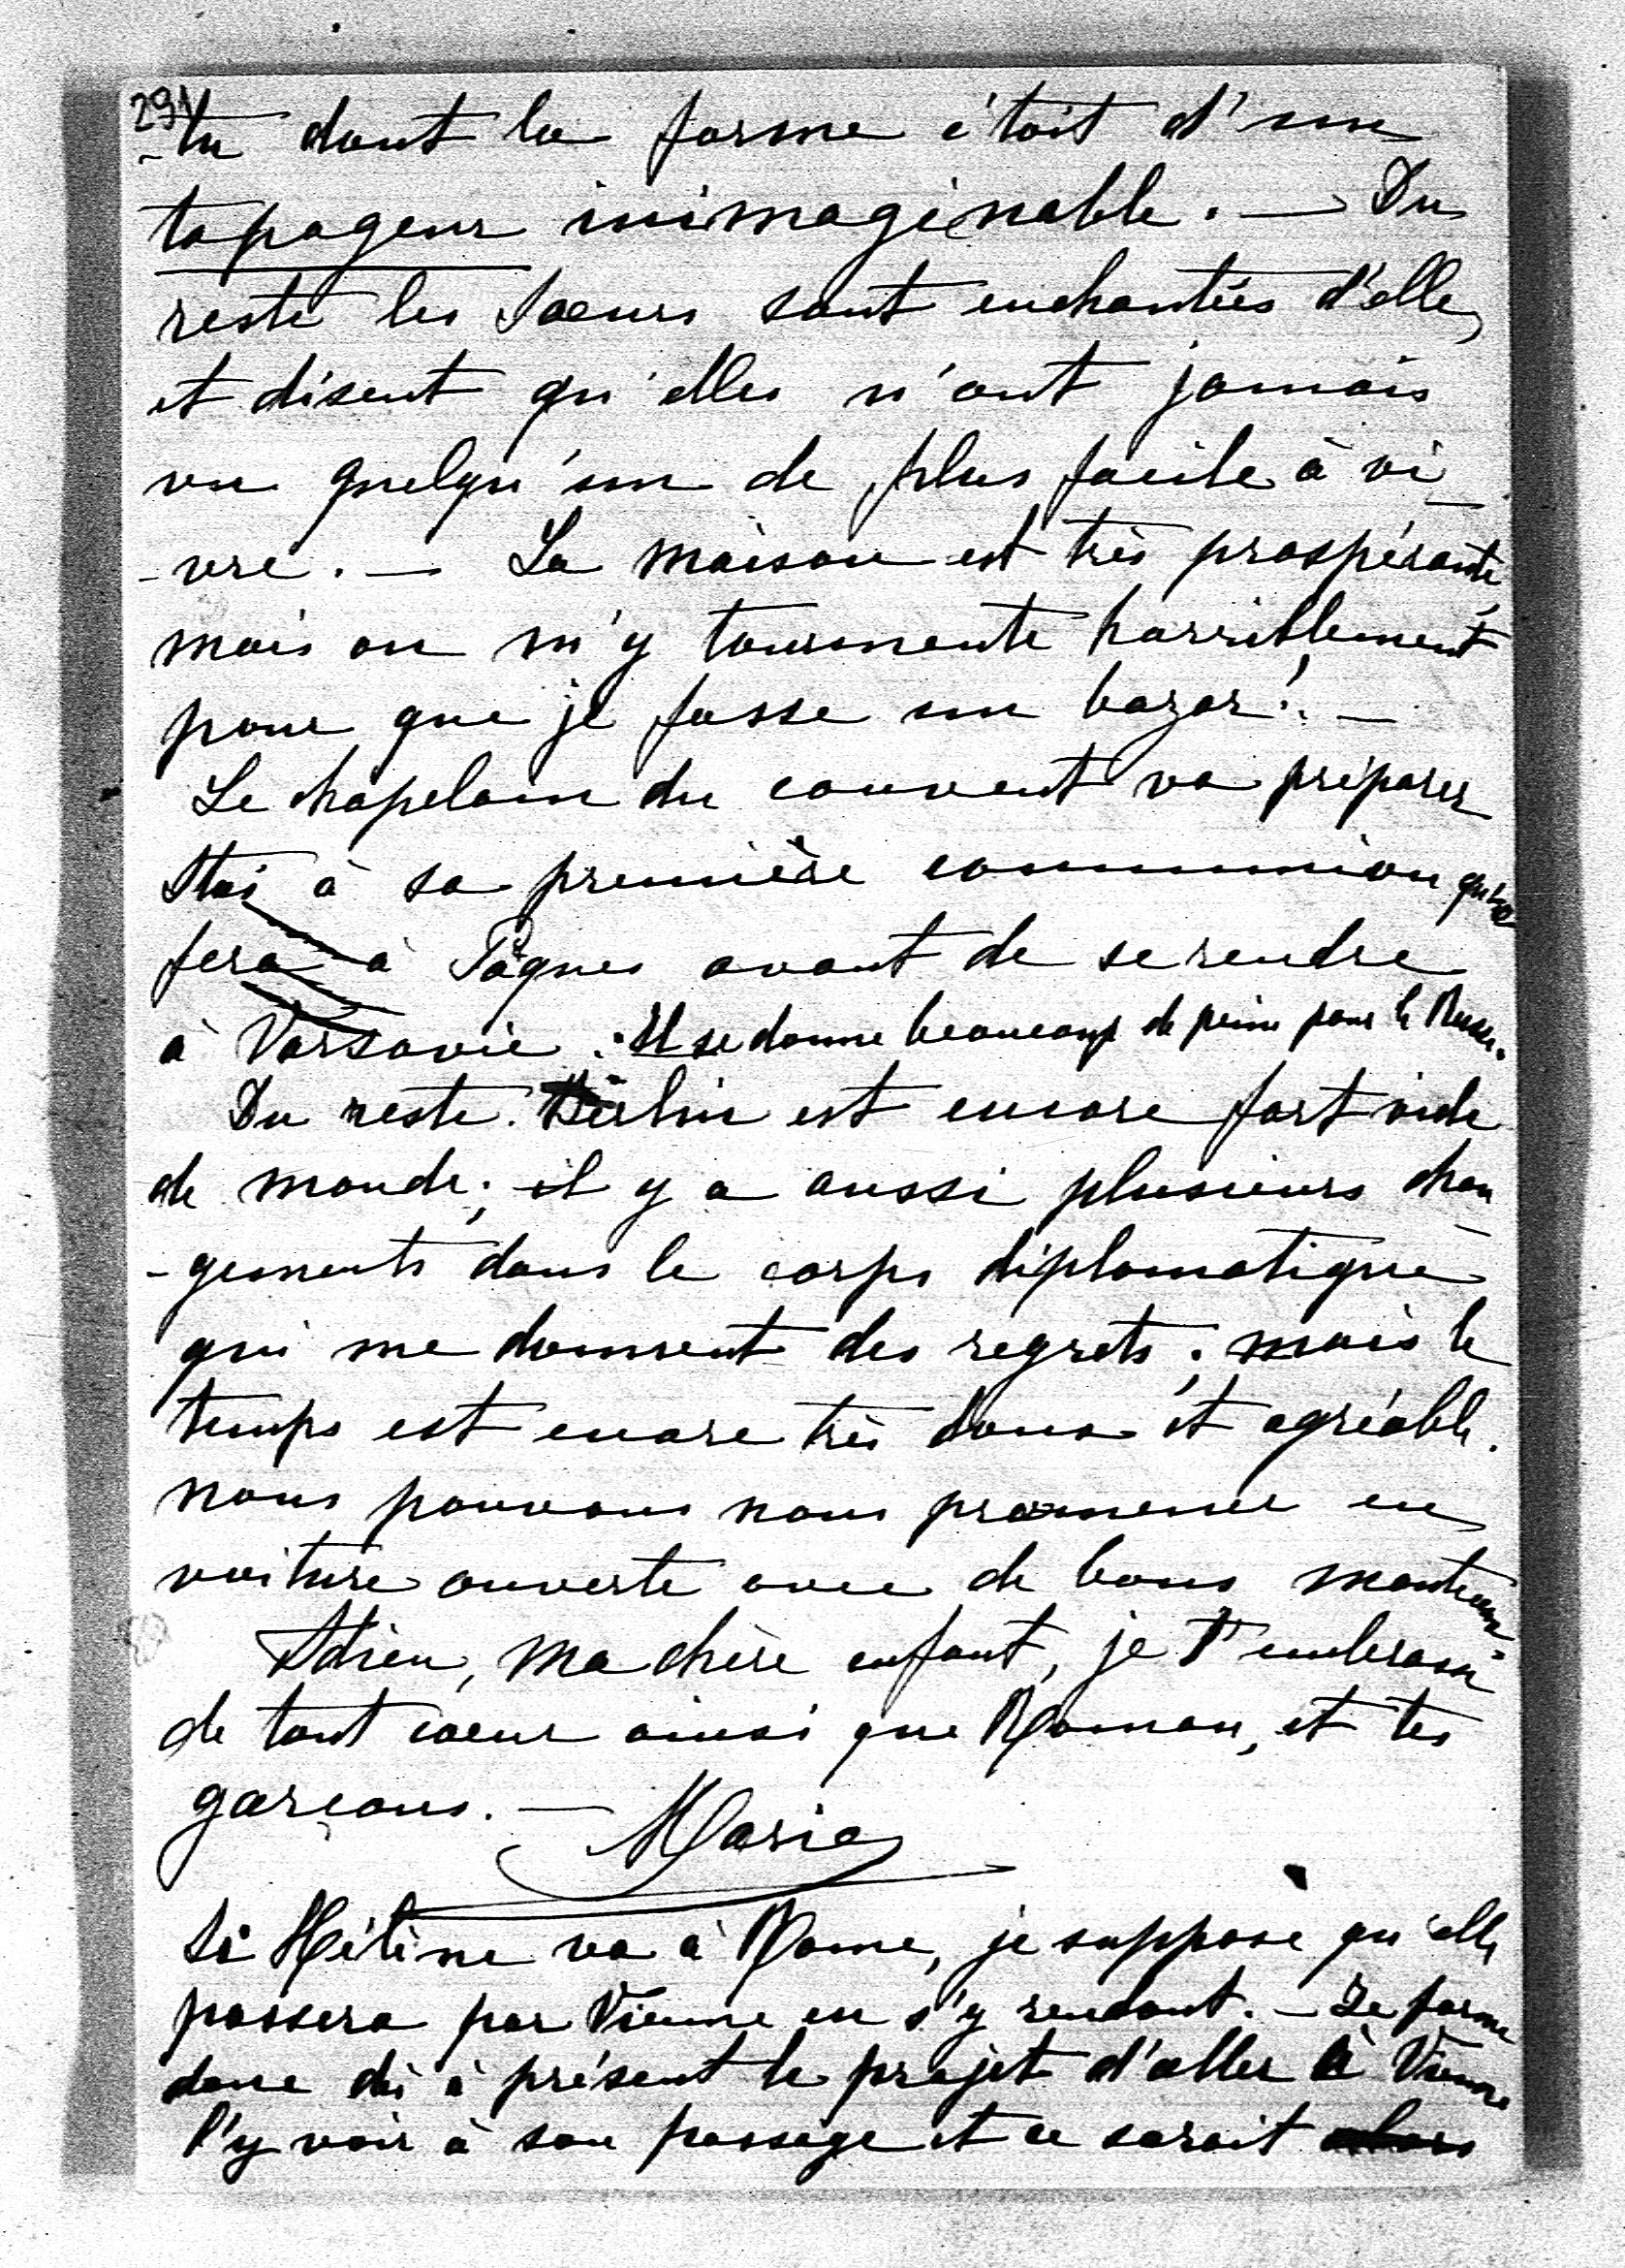 291
-tu dont la forme était d'un
tapageur inimaginable. — Du
reste les Soeurs sont enchantées d'elle,
et disent qu'elles n'ont jamais
vu quelqu'un de plus facile à vi-
-vre. — La maison est très prospérante,
mais on m'y tourmente horriblement
pour que je fasse un bazar! —
Le chapelain du couvent va préparer
Stas à sa première communion qu'il
fera à Pâques avant de se rendre
à Varsovie. Il se donne beaucoup de peine pour le Russe.
Du reste Berlin est encore fort vide
de monde; il y a aussi plusieurs chan
-gements dans le corps diplomatique
qui me donnent des regrets; mais le
temps est encore très doux et agréable.
nous pouvons nous promener en
voiture ouverte avec de bons manteaux.
Adieu, ma chère enfant, je t'embrasse
de tout coeur ainsi que Roman, et tes
garçons. —
Marie
Si Hélène va à Rome, je suppose qu'elle
passera par Vienne en s'y rendant. — Je forme
donc dès à présent le projet d'aller à Vienne
l'y voir à son passage et ce serait